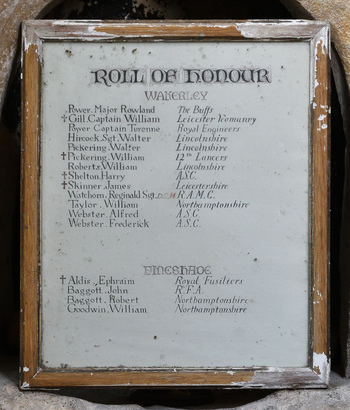 ROLL OF HONOUR
WAKERLEY
Power. Major Rowland The Buffs
† Gill. Captain William Leicester Yeomanry
Power Captain Terenne Royal Engineers
Hircock. Sgt. Walter Lincolnshire
Pickering. Walter Lincolnshire
† Pickering. William 12th Lancers
Roberts. William Lincolnshire
† Shelton. Harry A.S.C.
† Skinner James Leicestershire
Watchorn. Reginald Sgt. D.C.M. R.A.M.C.
Taylor. William Northamptonshire
Webster. Alfred A.S.C.
Webster. Frederick A.S.C.
FINESHADE
† Aldis. Ephraim Royal Fusiliers
Baggott. John R.F.A.
Baggott. Robert Northamptonshire
Goodwin. William Northamptonshire